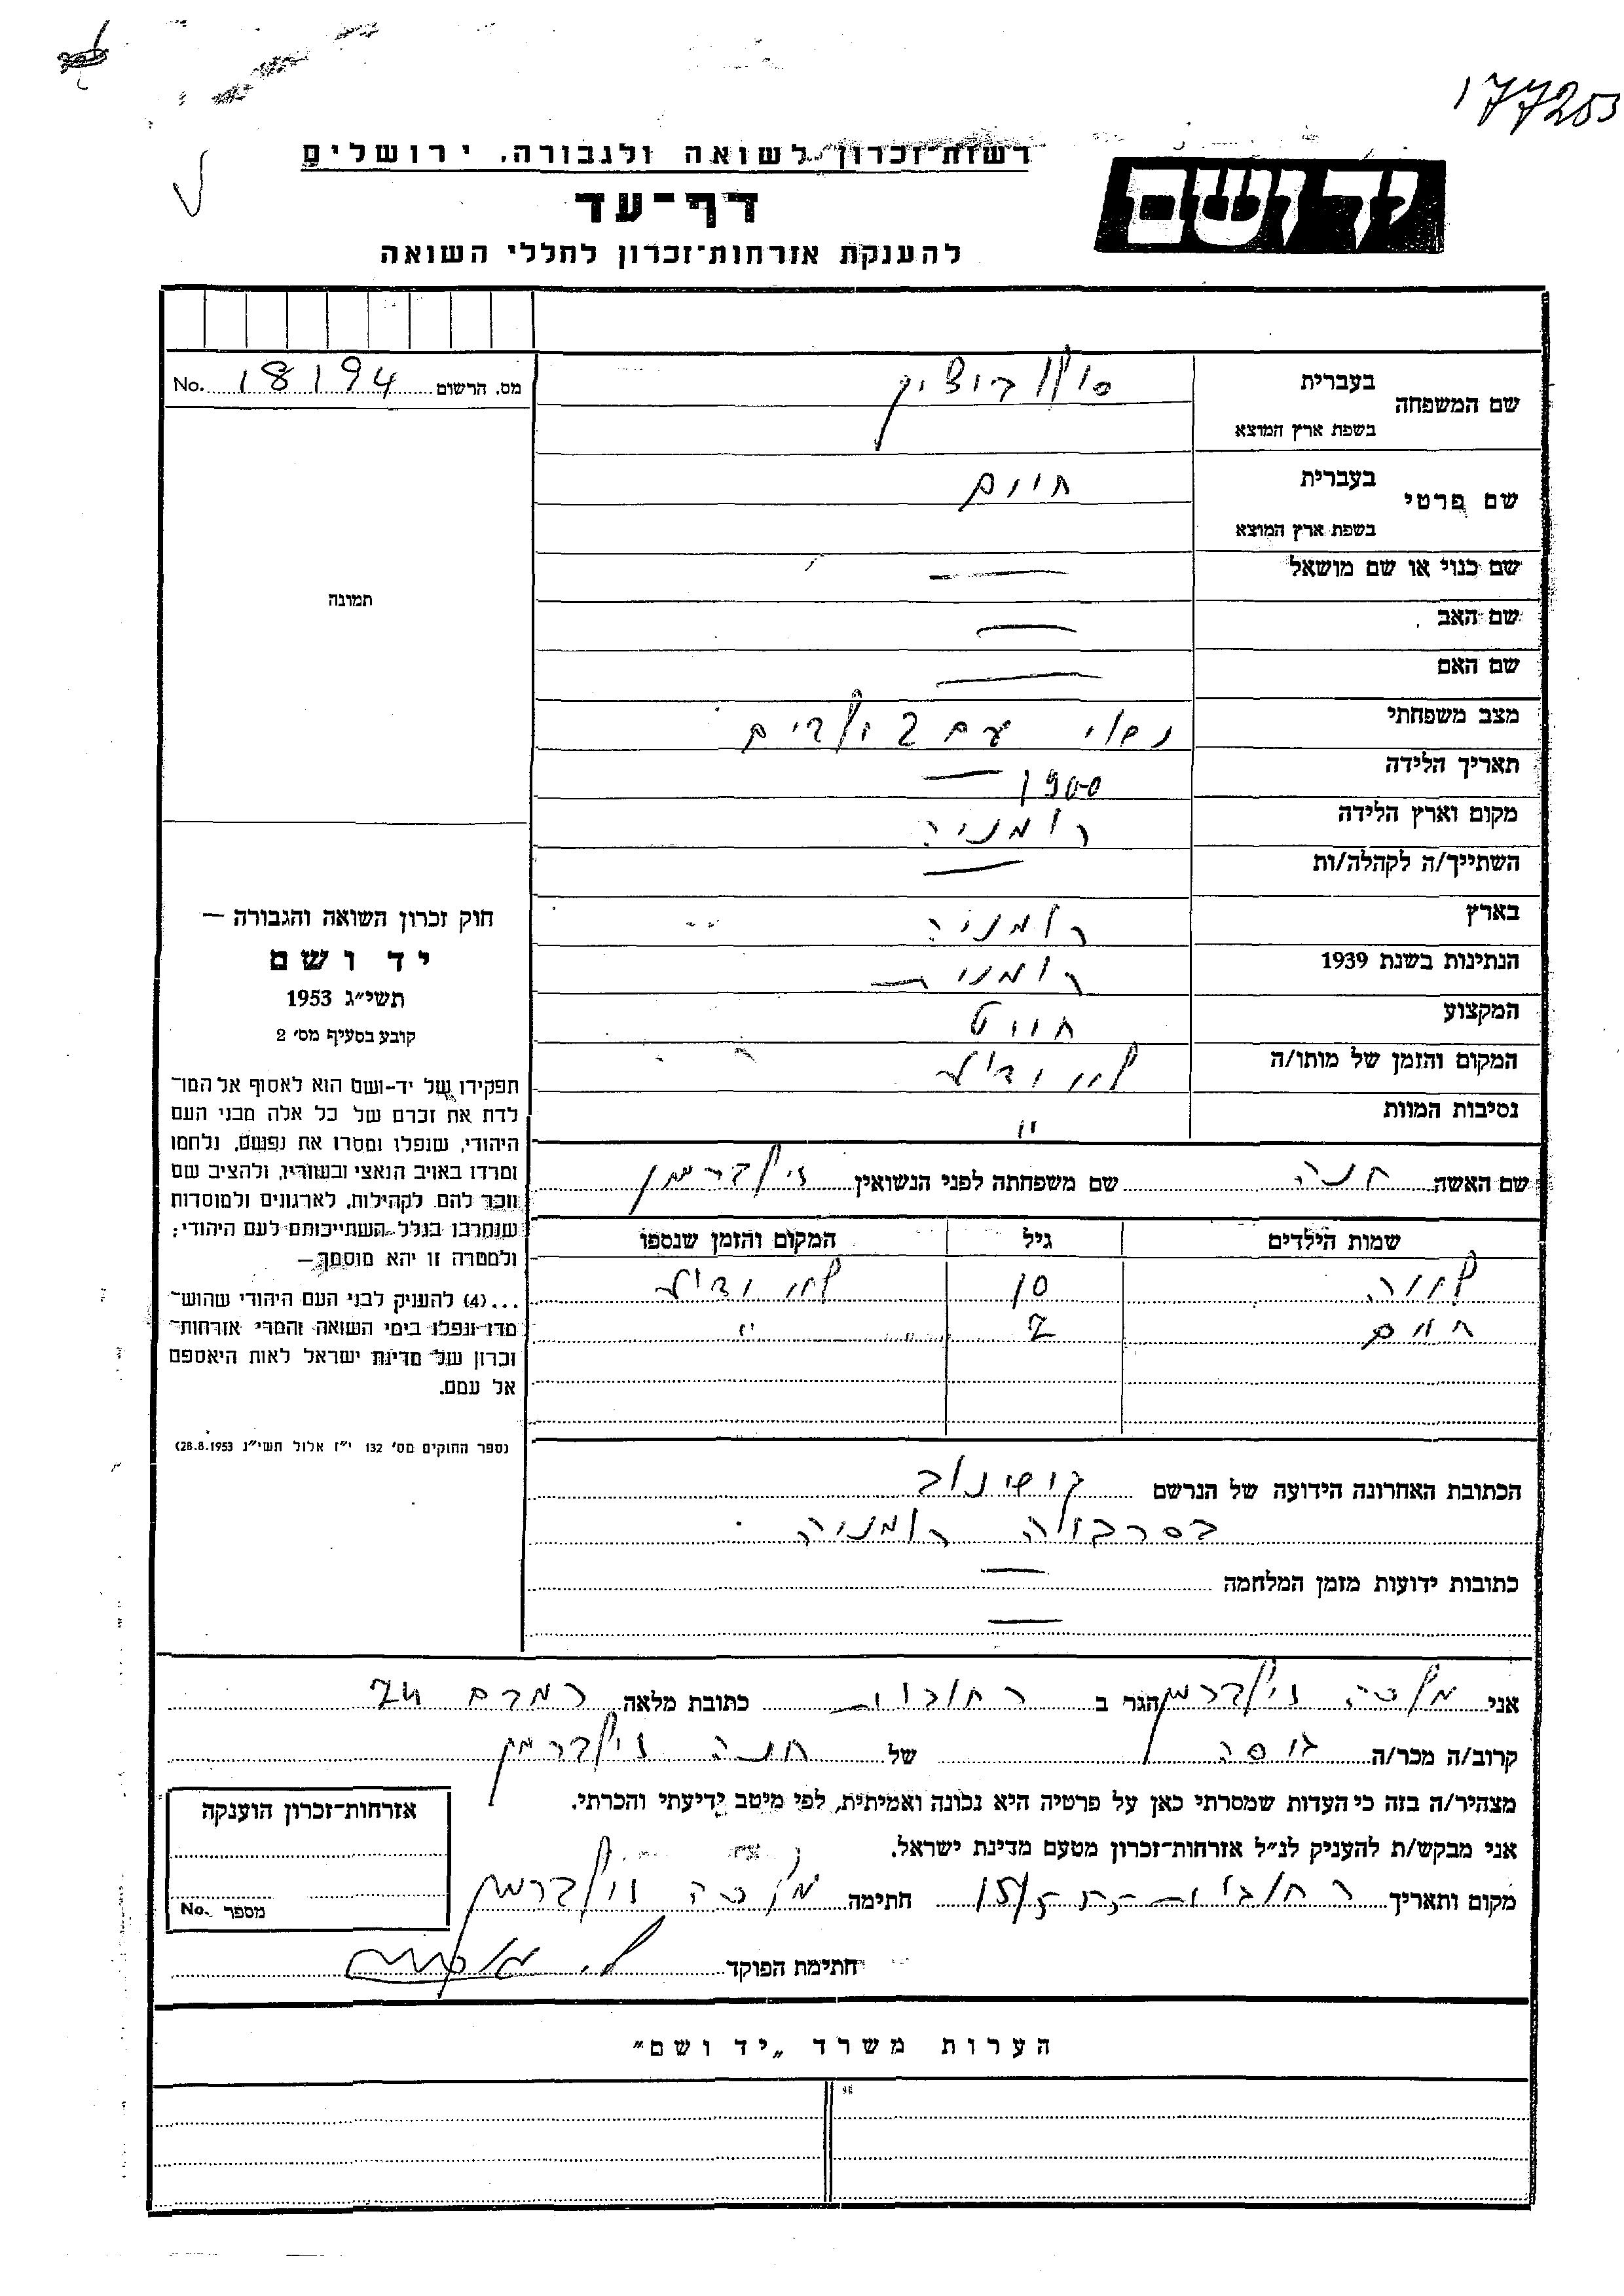 177203
רשות־זכרון לשואה ולגבורה, ירושלים
יד ושם
דף־עד
להענקת אזרחות־זכרון לחללי השואה
מס. הרשום 18194 No.
שם המשפחה
בעברית
בשפת ארץ המוצא
שם פרטי
בעברית חיים
בשפת ארץ המוצא
שם כנוי או שם מושאל —
שם האב —
שם האם —
מצב משפחתי נשוי עם 2 ילדים
תאריך הלידה 1900 —
מקום וארץ הלידה רומניה
השתייך/ה לקהלה/ות —
בארץ רומניה
הנתינות בשנת 1939 רומנית
המקצוע חייט
המקום והזמן של מותו/ה לא ידוע
נסיבות המוות "
תמונה
חוק זכרון השואה והגבורה —
יד ושם
תשי״ג 1953
קובע בסעיף מס׳ 2
תפקידו של יד-ושם הוא לאסוף אל המו־
לדת את זכרם של כל אלה מבני העם
היהודי, שנפלו ומסרו את נפשם, נלחמו
ומרדו באויב הנאצי ובעוזריו, ולהציב שם
וזכר להם, לקהילות, לארגונים ולמוסדות
שנחרבו בגלל השתייכותם לעם היהודי;
ולמטרה זו יהא מוסמך —
...(4) להעניק לבני העם היהודי שהוש־
מדו ונפלו בימי השואה והמרי אזרחות־
זכרון של מדינת ישראל לאות היאספם
אל עמם.
(ספר החוקים מס׳ 132 י״ז אלול תשי״ג 28.8.1953)
שם האשה חנה שם משפחתה לפני הנשואין זילברמן
שמות הילדים גיל המקום והזמן שנספו
10 לא ידוע
חיים 7 " "
הכתובת האחרונה הידועה של הנרשם קישינוב
בסרביה רומניה
כתובות ידועות מזמן המלחמה —
—
אני מלכה זילברמן הגר ב רחובות כתובת מלאה רמבם 74
קרוב/ה מכר/ה גיסה של חנה זילברמן
מצהיר/ה בזה כי העדות שמסרתי כאן על פרטיה היא נכונה ואמיתית, לפי מיטב ידיעתי והכרתי.
אני מבקש/ת להעניק לנ״ל אזרחות־זכרון מטעם מדינת ישראל.
מקום ותאריך רחובות חתימה מלכה זילברמן
חתימת הפוקד
אזרחות־זכרון הוענקה
מספר No.
הערות משרד „יד ושם״